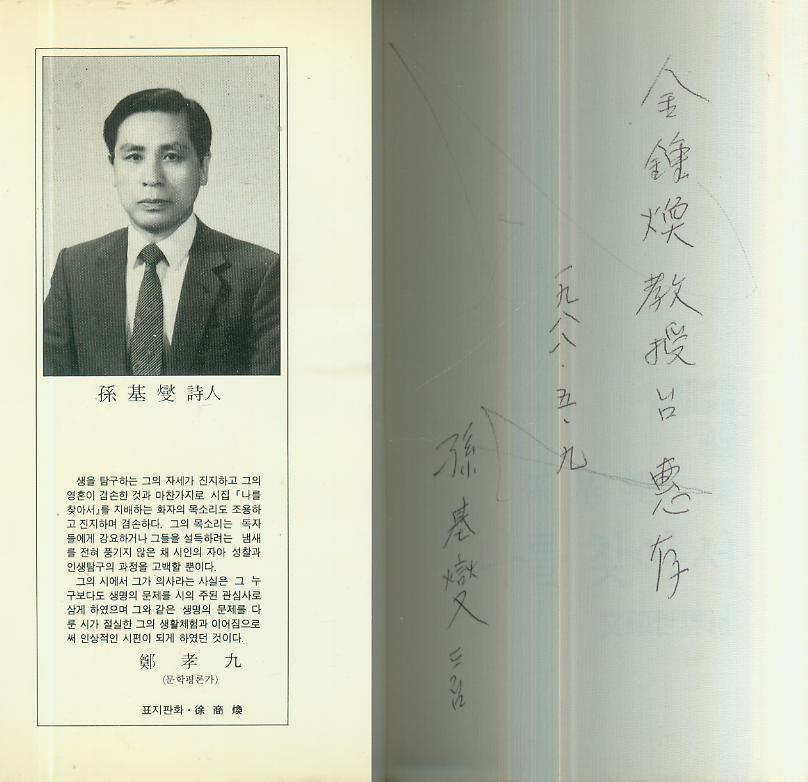 孫 基 燮 詩人
생을 탐구하는 그의 자세가 진지하고 그의
영혼이 겸손한 것과 마찬가지로 시집 「나를
찾아서」를 지배하는 화자의 목소리도 조용하
고 진지하며 겸손하다. 그의 목소리는 독자
들에게 강요하거나 그들을 설득하려는 냄새
를 전혀 풍기지 않은 채 시인의 자아 성찰과
인생탐구의 과정을 고백할 뿐이다.
그의 시에서 그가 의사라는 사실은 그 누
구보다도 생명의 문제를 시의 주된 관심사로
삼게 하였으며 그와 같은 생명의 문제를 다
룬 시가 절실한 그의 생활체험과 이어짐으로
써 인상적인 시편이 되게 하였던 것이다.
鄭 孝 九
(문학평론가)
표지판화·徐 商 煥
金鍾煥敎授 惠存
一九八八·五·九
孫基燮